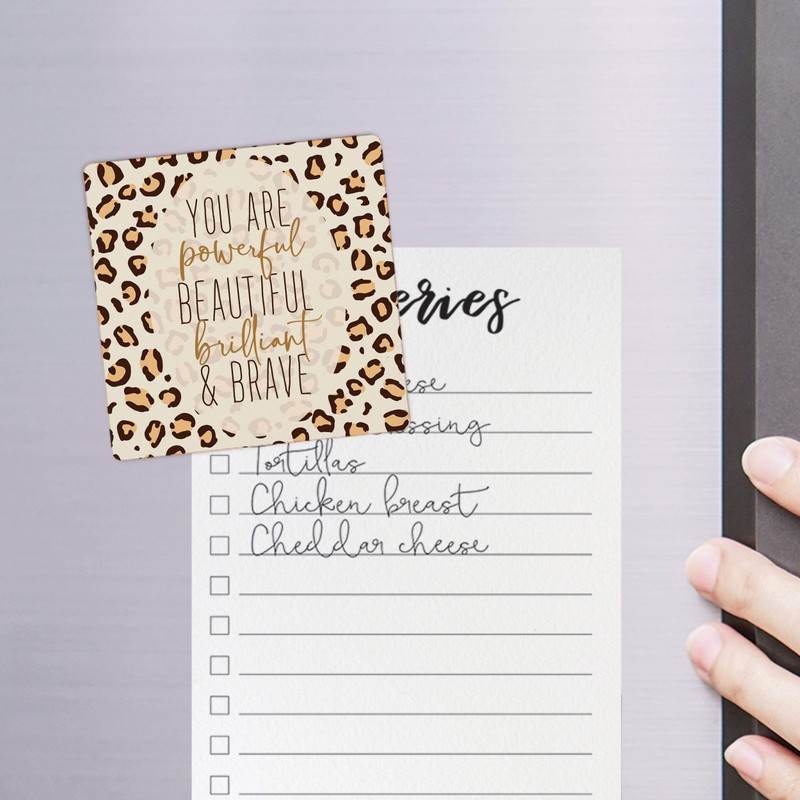 YOU ARE
powerful
BEAUTIFUL
brilliant
& BRAVE
Tortillas
Chicken breast
Cheddar cheese